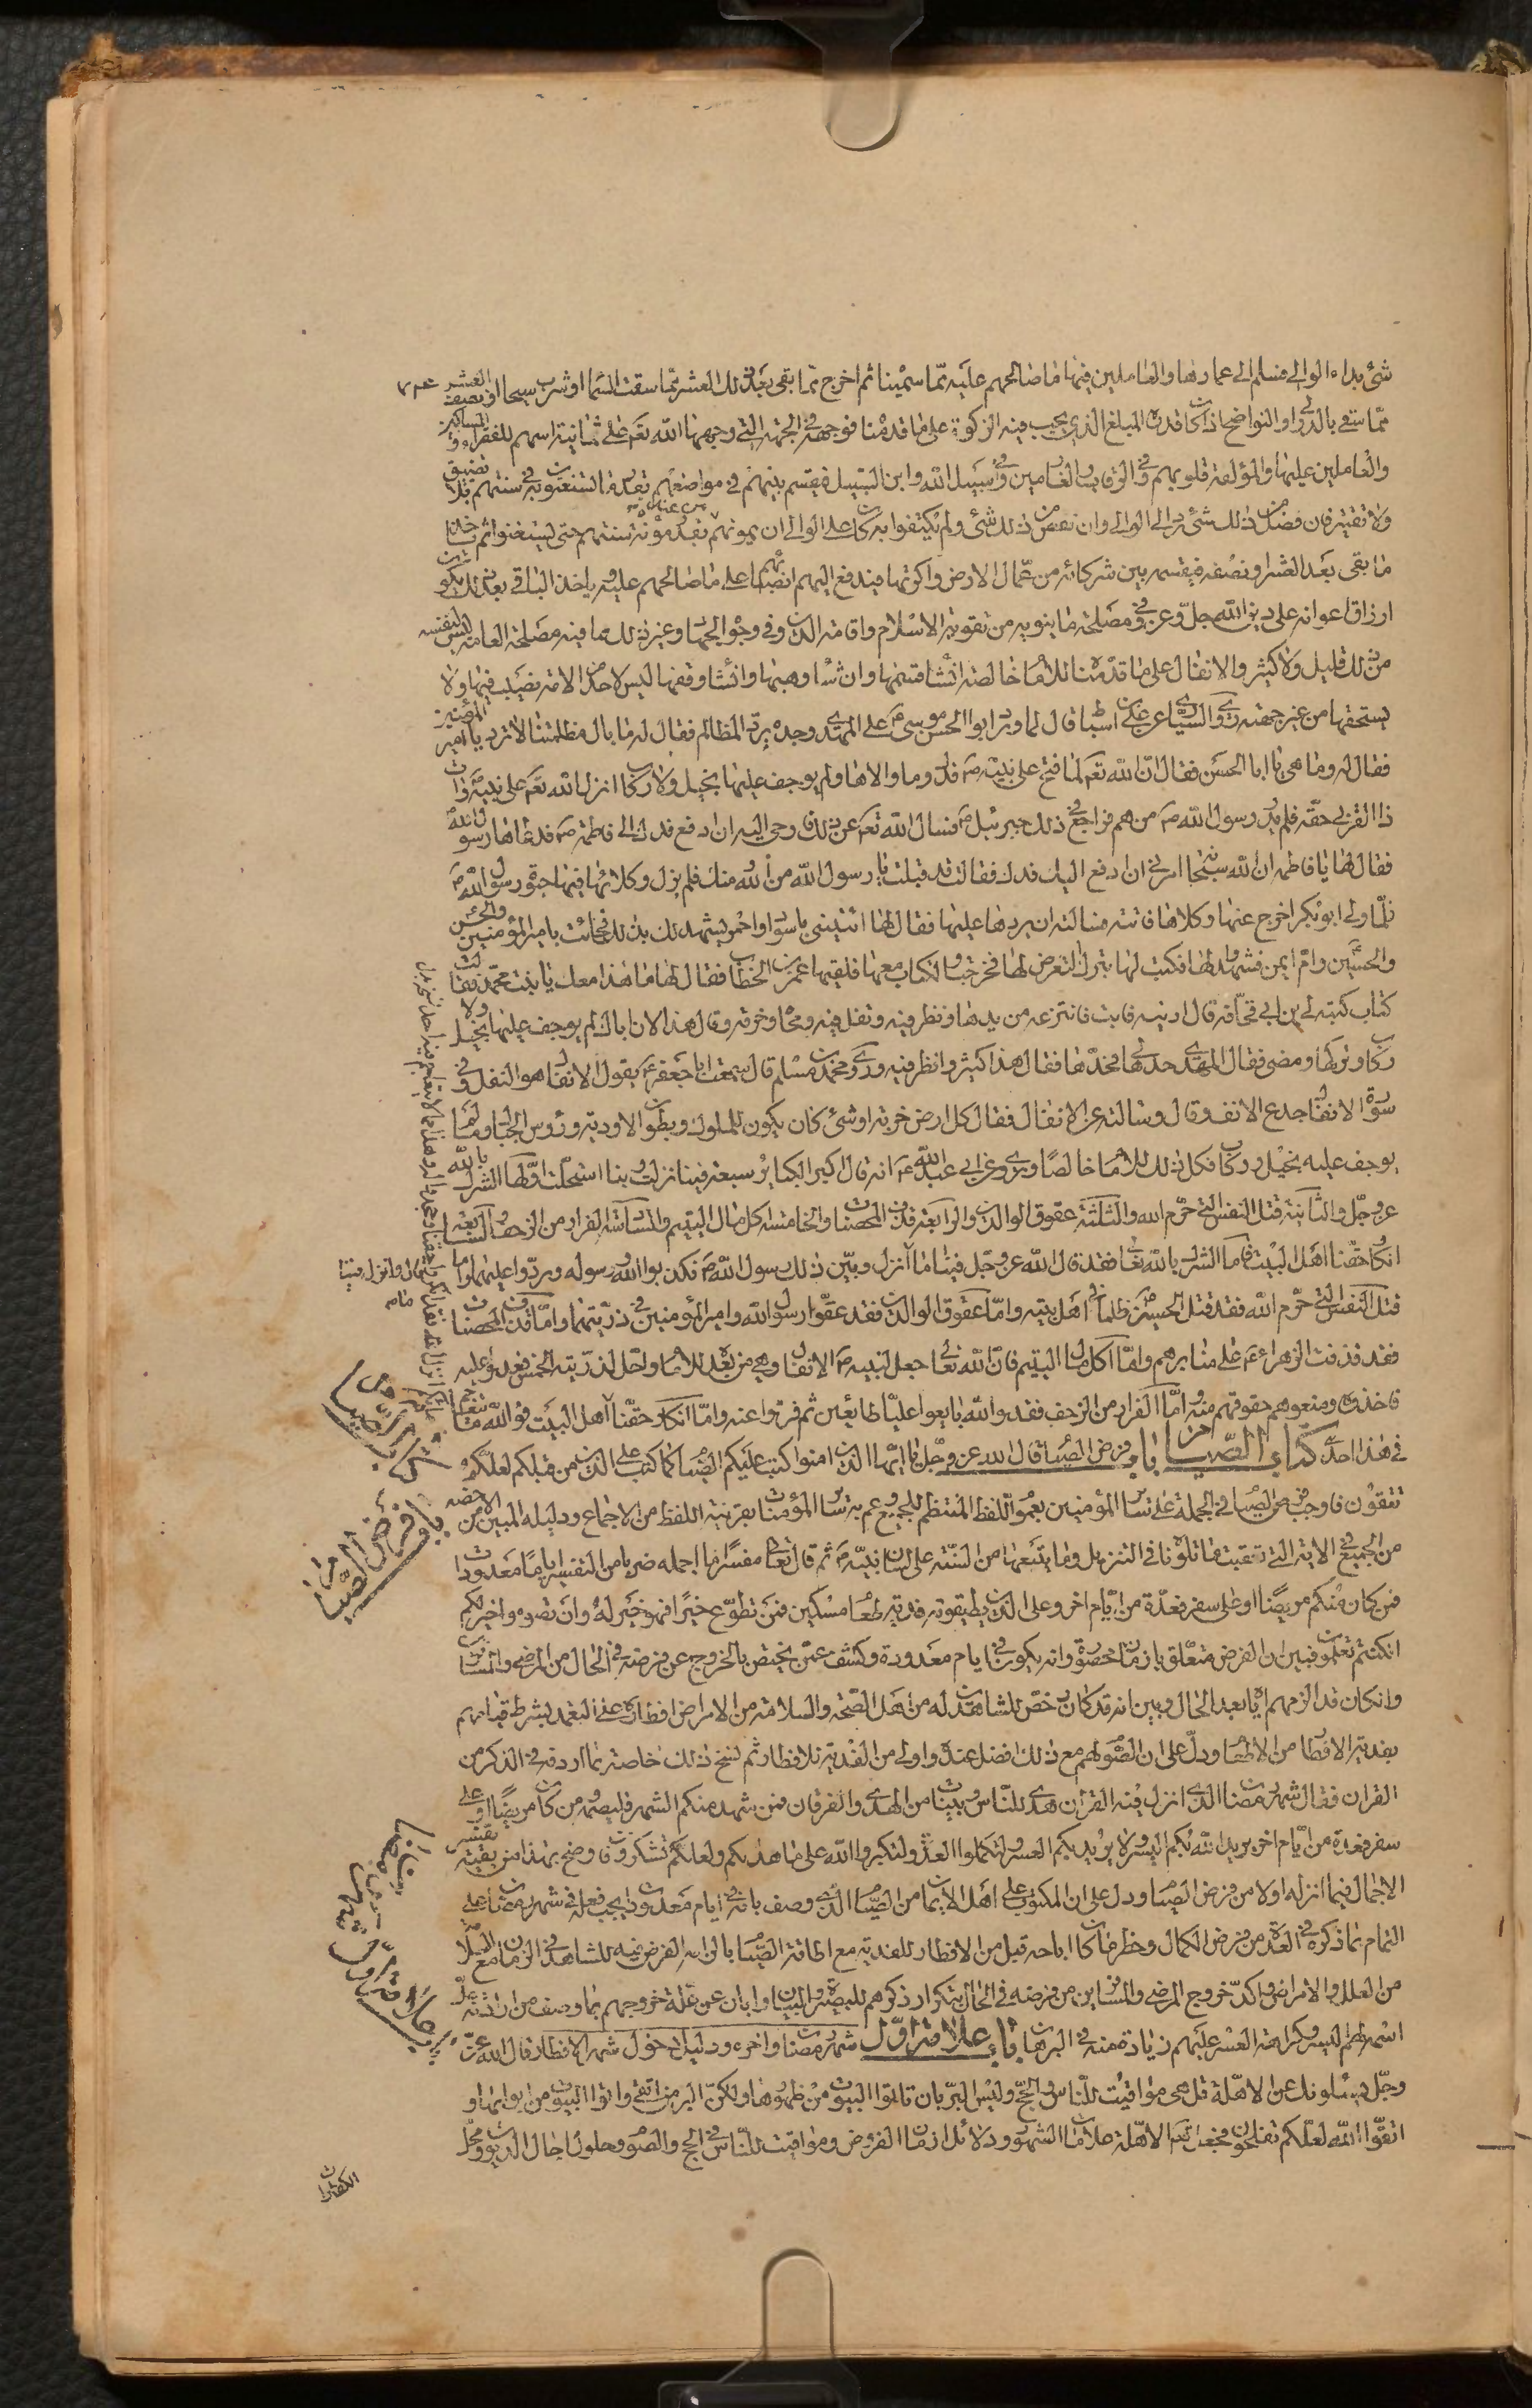 شئ بداء الوالي فسلم الى عمارها والعاملين فيها ما صالحهم عليه مما سمينا ثم اخرج مما بقى بعد ذلك العشر مما سقت السما او شرب سيحا او نصف العشر
مما سقى بالدوالي او النواضح اذا كان قد بلغ المبلغ الذي يجب فيه الزكوة على ما قدمنا فوجهه في الجهة التي وجهها الله تع على ثمانية اسهم للفقراء والمساكين
والعاملين عليها والمؤلفة قلوبهم وفي الرقاب والغارمين وفي سبيل الله وابن السبيل فيقسم بينهم في مواضعهم بقدر ما يستغنون به في سنتهم بلا تضييق
ولا تقتير فان فضل من ذلك شئ رد الى الوالي وان نقص من ذلك شئ ولم يكتفوا به كان على الوالي ان يمونهم بقدر مؤنة سنتهم حتى يستغنوا ثم
ما بقى بعد العشر او نصفه فيقسمه بين شركائه من عمال الارض واكرتها فيدفع اليهم انصبائهم على ما صالحهم عليه وياخذ الباقي بعد ذلك فيكون
ارزاق اعوانه على دين الله جل وعز وفي مصلحة ما ينوبه من تقوية الاسلام واقامة الدين وفي وجوه الجهاد وغير ذلك مما فيه مصلحة العامة ليس لنفسه
من ذلك قليل ولا كثير والانفال على ما قدمنا للامام خالصة انشا قسمها وان شاء وهبها وانشا وقفها ليس لاحد من الامة نصيب فيها ولا
يستحقها من غير جهته روى السياري عن علي بن اسباط قال لما ورد ابو الحسن موسى ع على المهدي وجده يرد المظالم فقال له ما بال مظلمتنا لا ترد يا امير المؤمنين
فقال له وما هي يا ابا الحسن فقال ان الله تع لما فتح على نبيه ص فدك وما والاها ولم يوجف عليها بخيل ولا ركاب انزل الله تع على نبيه وات
ذا القربى حقه فلم يدر رسول الله ص من هم فراجع في ذلك جبرئيل ع فسال الله تع عن ذلك فاوحى اليه ان ادفع فدك الى فاطمة ع فدعاها رسول الله
فقال لها يا فاطمة ان الله سبحانه امرني ان ادفع اليك فدك فقالت قد قبلت يا رسول الله من الله ومنك فلم يزل وكلائها فيها حيوة رسول الله ص
فلما ولى ابو بكر اخرج عنها وكلاها فاتته فسالته ان يردها عليها فقال لها ائتيني باسود او احمر ليشهد لك بذلك فجائت بامير المؤمنين والحسن
والحسين وام ايمن فشهدوا لها فكتب لها بترك التعرض لها فخرجت والكتاب معها فلقيها عمر بن الخطاب فقال لها ما هذا معك يا بنت محمد قالت
كتاب كتبه لي ابن ابي قحافة قال ارينيه فابت فانتزعه من يدها ونظر فيه وتفل فيه ومحاه وخرقه وقال هذا لان اباك لم يوجف عليها بخيل ولا
ركاب وتركها ومضى فقال المهدي حدها لي فحدها فقال هذا كثير وانظر فيه وروى محمد بن مسلم قال سمعت ابا جعفر ع يقول الانفال هو النفل وفي
سورة الانفال جدع الانف وقال وسالته عن الانفال فقال كل ارض خربة او شئ كان يكون للملوك وبطون الاودية ورؤس الجبال وما لم
يوجف عليه بخيل ولا ركاب فكل ذلك للامام خالصا وروى عن ابي عبد الله ع انه قال اكبر الكبائر سبعة فينا نزلت وبنا استحلت اولها الشرك بالله
عز وجل والثانية قتل النفس التي حرم الله والثالثة عقوق الوالدين والرابعة قذف المحصنات والخامسة اكل مال اليتيم والسادسة الفرار من الزحف والسابعة
انكار حقنا اهل البيت فاما الشرك بالله تعالى فقد قال الله عز وجل فينا ما انزل وبين ذلك رسول الله ص فكذبوا الله ورسوله وردوا عليهما واما
قتل النفس التي حرم الله فقد قتل الحسين ظلما في اهل بيته واما عقوق الوالدين فقد عقوا رسول الله وامير المؤمنين في ذريتهما واما قذف المحصنات
فقد قذفت الزهراء ع على منابرهم واما اكل مال اليتيم فان الله تعالى جعل لنبيه ص الانفال وهي من بعده للامام واحل لذريته الخمس فعدوا عليه
فاخذوه ومنعوهم حقوقهم منه واما الفرار من الزحف فقد والله بايعوا عليا طائعين ثم فروا عنه واما انكار حقنا اهل البيت فوالله ما
في هذا احد كتاب الصيام باب فرض الصيام قال الله عز وجل يا ايها الذين امنوا كتب عليكم الصيام كما كتب على الذين من قبلكم لعلكم
تتقون فاوجب فرض الصيام في الجملة على ساير المؤمنين بعموم اللفظ المنتظم للجميع وعم به ساير المؤمنات بقرينة اللفظ من الاجماع ودليله المبين من
من الجميع في الاية التي تعقبت ما تلوناه في التنزيل وما يتبعها من السنة على لسان نبيه ص ثم قال تعالى مفسرا ما اجمله ضربا من التفسير اياما معدودات
فمن كان منكم مريضا او على سفر فعدة من ايام اخر وعلى الذين يطيقونه فدية طعام مسكين فمن تطوع خيرا فهو خير له وان تصوموا خير لكم
انكنتم تعلمون فبين ان الفرض متعلق بازمان مخصوصة وانه يكون في ايام معدودة وكشف عمن يختص بالخروج عن فرضه في الحال من المرضى والمسافرين
وانكان قد الزمهم اياه بعد الحال وبين انه قد كان رخص للشاهدين له من اهل الصحة والسلامة من الامراض افطاره على التعمد بشرط قيامهم
بفدية الافطار من الاطعام ودل على ان الصوم لهم مع ذلك افضل عنده واولى من الفدية للافطار ثم نسخ ذلك خاصة بما اردفه في الذكر من
القران فقال شهر رمضان الذي انزل فيه القران هدى للناس وبينات من الهدى والفرقان فمن شهد منكم الشهر فليصمه ومن كان مريضا او على
سفر فعدة من ايام اخر يريد الله بكم اليسر ولا يريد بكم العسر ولتكملوا العدة ولتكبروا الله على ما هداكم ولعلكم تشكرون فاوضح بهذا من بقية تفسير
الاجمال فيما انزله اولا من فرض الصيام ودل على ان المكتوب على اهل الايمان من الصيام الذي وصف بانه في ايام معدودات يجب فعله في شهر رمضان على
التمام بما ذكره في العدة من فرض الكمال وحظر ما كان اباحه قبل من الافطار للفدية مع اطاقة الصيام بالزامه الفرض فيه للشاهد في الزمان مع السلامة
من العلل والامراض واكد خروج المرضى والمسافرين من فرضه في الحال بتكرار ذكرهم للبصيرة والبيان وابان عن علة خروجهم بما وصف من ارادته جل
اسمه لهم اليسر وكراهته العسر عليهم زيادة منه في البرهان باب علامة اول شهر رمضان واخره ودليل دخول شهر الافطار قال الله عز
وجل يسئلونك عن الاهلة قل هي مواقيت للناس والحج وليس البر بان تاتوا البيوت من ظهورها ولكن البر من اتقى واتوا البيوت من ابوابها و
اتقوا الله لعلكم تفلحون فجعل تع الاهلة علامات الشهور ودلائل ازمان الفروض ومواقيت للناس في الحج والصوم وحلول اجال الديون ومحل
الكفارات
كتاب الصيام
باب فرض الصيام
باب علامة اول شهر رمضان